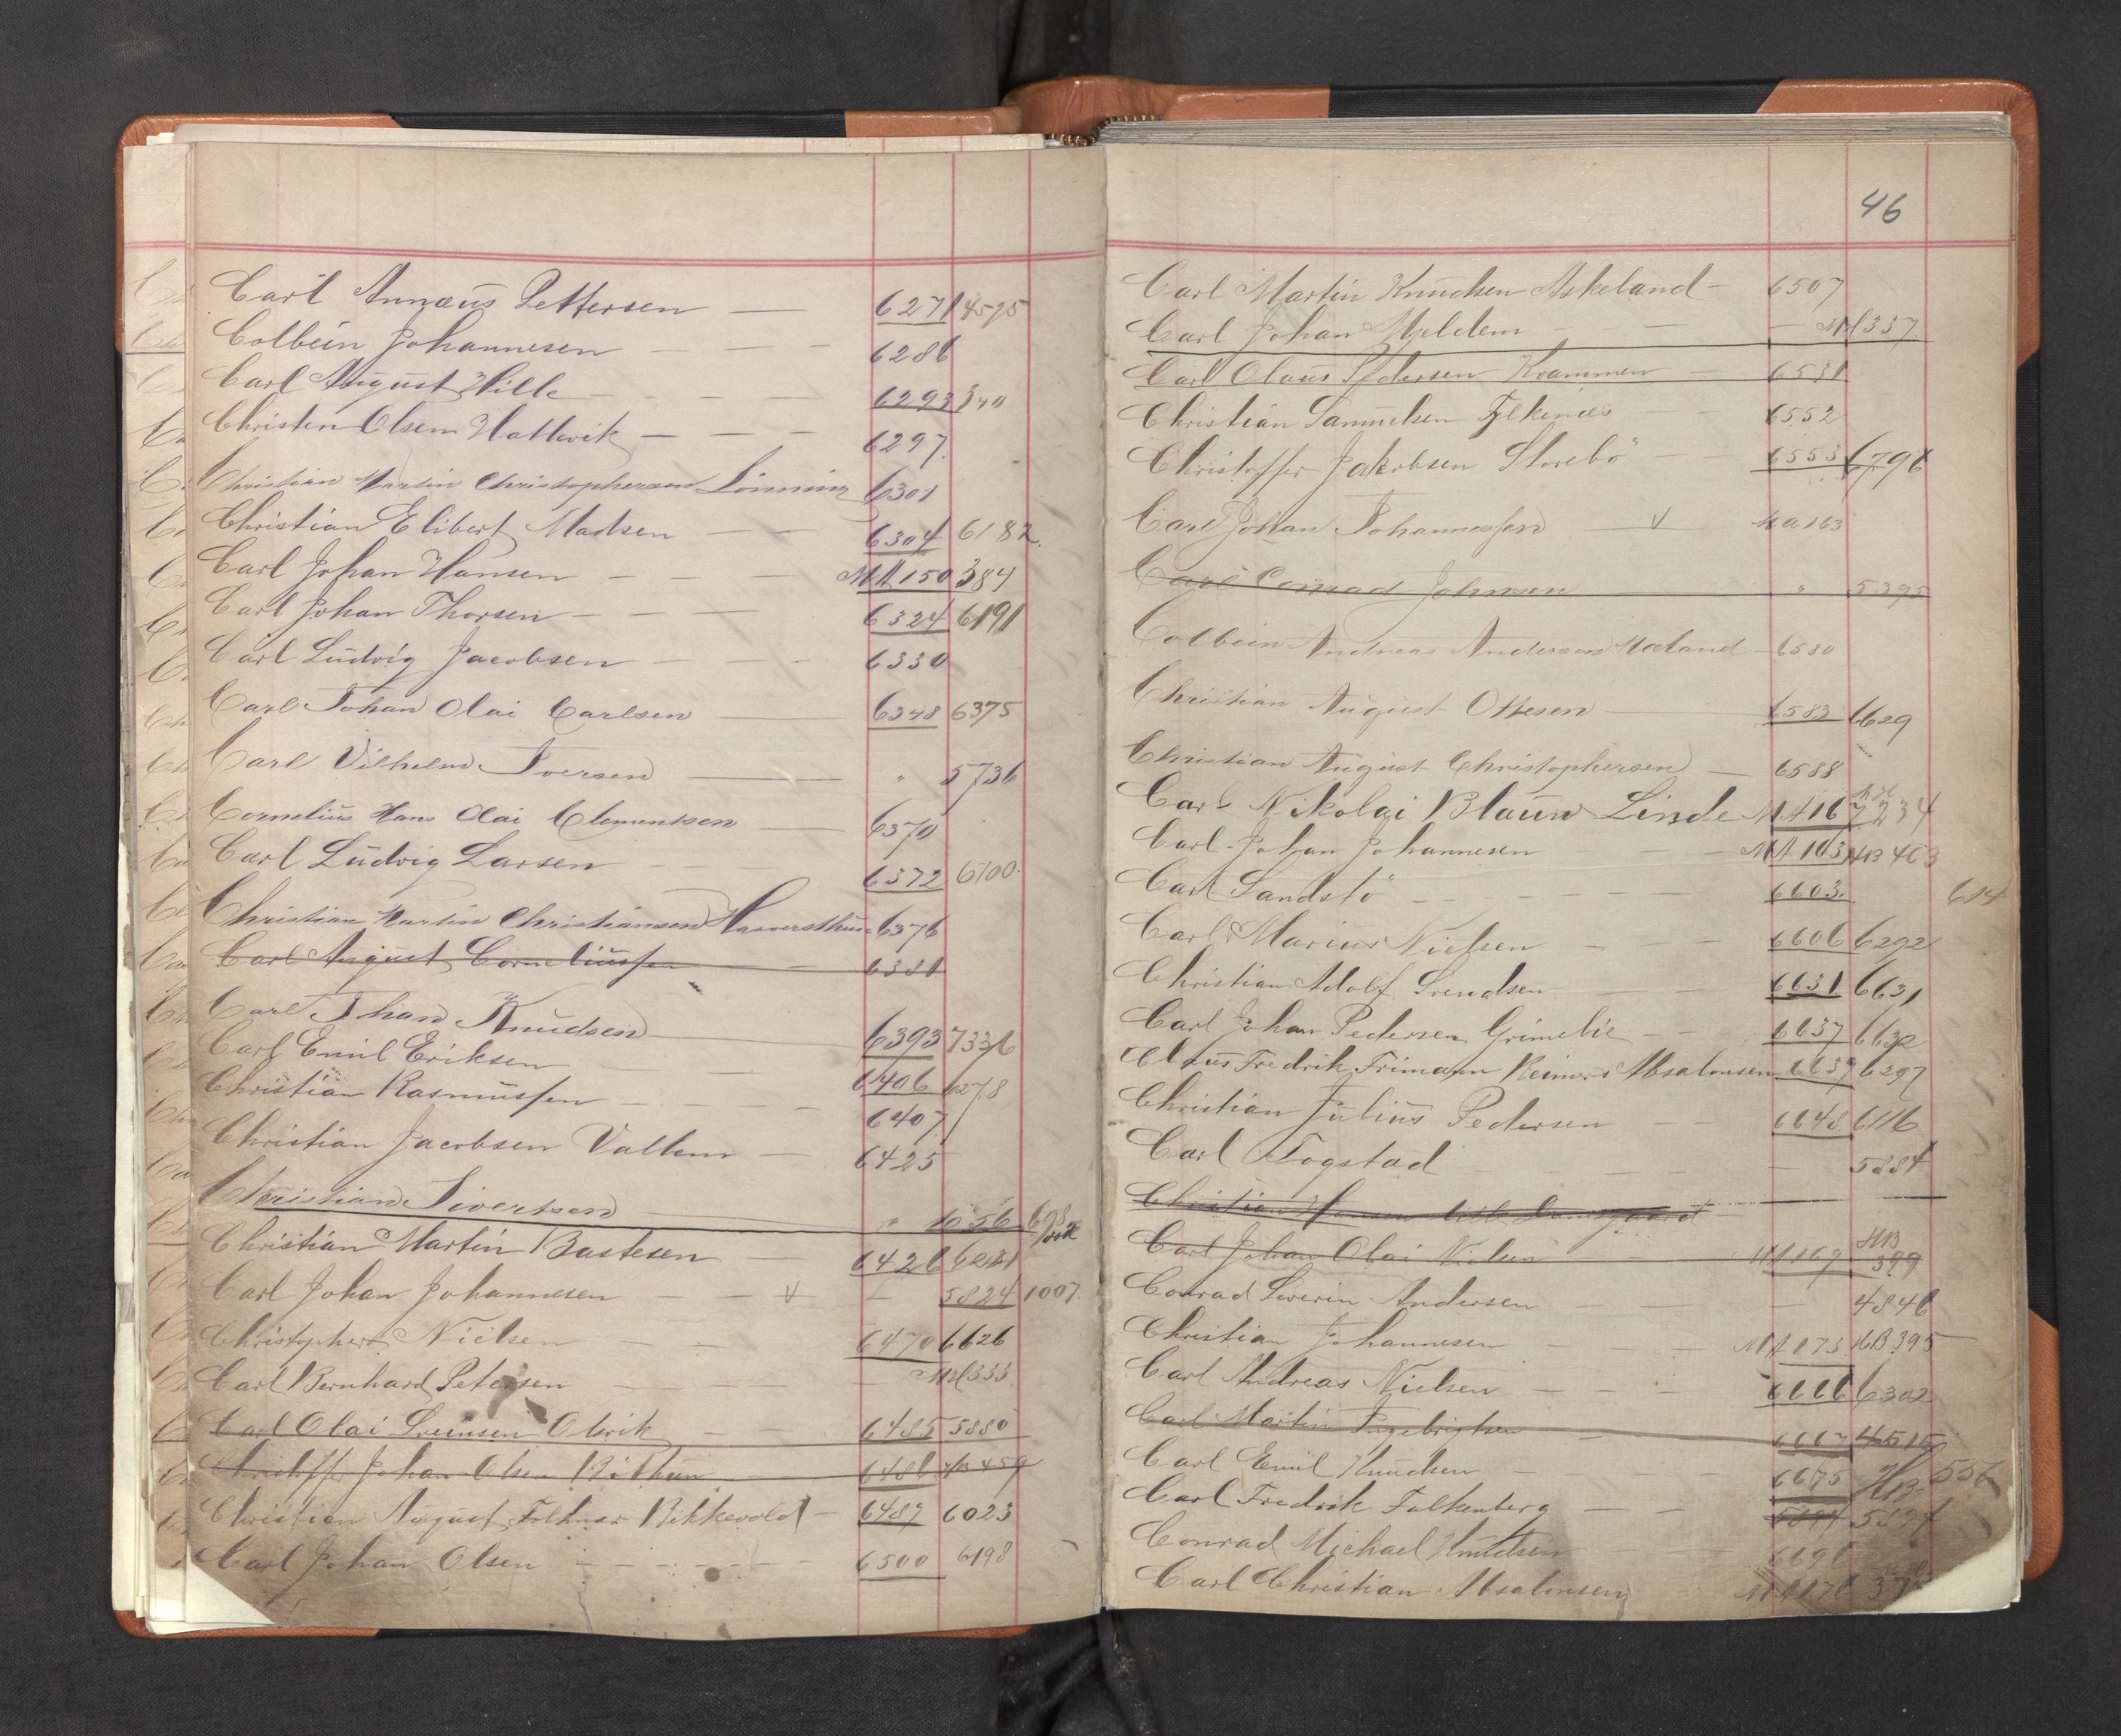 Carl Annæus Pettersen — 6271 4595
Colbein Johannesen — — — 6286
Carl August Hille — — — 6293 340
Christen Olsen Hatlevik — — — 6297
Christian Martin Christophersen Lönning 6301
Christian Elibert Madsen — — 6304 6182
Carl Johan Hansen — — — MA 150 384
Carl Johan Thorsen — — — 6324 6191
Carl Ludvig Jacobsen — — — 6330
Carl Johan Olai Carlsen — 6348 6375
Carl Vilhelm Iversen — " 5736
Cornelius Hans Olai Clementsen — 6370
Carl Ludvig Larsen — — 6372 6100
Christian Martin Christiansen 6376
Carl August Corneliussen — 6381
Carl Johan Knudsen — 6393 7336
Carl Emil Eriksen — — 6406 6278
Christian Rasmussen — — — 6407
Christian Jacobsen Vallem — 6425
Christian Sivertsen — " 1056
Christian Martin Bastesen 6426 6281
Carl Johan Johannesen — — V — 5824 1007
Christopher Nielsen — — 6470 6626
Carl Bernhard Petersen — — — 333
Carl Olai Olsvik — 6485 5880
Christoffer Johan Olsen 6486 459
Christian August Birkevold — 6489 6023
Carl Johan Olsen — — — — 6500 6198
46
Carl Martin Knudsen Askeland — 6507
Carl Johan Mjeldem — — — 337
Carl Olaus Pedersen Krammen — 6531
Christian Samuelsen Fylkenæs — 6552
Christoffer Jakobsen Storebö — — 6553 6796
Carl Johan Johannessen — V MA 163
Carl Conrad Johnsen " 5395
Colbein Andreas Andersen Mæland — 6580
Christian August Ottesen 6583 6629
Christian August Christophersen — 6588
Carl Nikolai Blauw Linde MA 16 7234
Carl Johan Johannesen — — MA 163 MB 463
Carl Sandstö — — — — 6603 614
Carl Marius Nielsen — — 6606 6292
Christian Adolf Svendsen — — 6631 6631
Carl Johan Pedersen Grimelie — — 6637 6632
Claus Fredrik Frimann Reimers Absalonsen 6639 6297
Christian Julius Pedersen — — 6648 6116
Carl Togstad — — — — 5884
Christian Hansen
Carl Johan Olai Nielsen — — MA 169 MB 399
Conrad Severin Andersen — — — 4846
Christian Johannesen — — MA 173 MB 395
Carl Andreas Nielsen — — — 6666 6302
Carl Martin Ingebrigtsen — 6667 4515
Carl Emil Knudsen — — 6675 MB 556
Carl Fredrik Falkenberg — — 5894 5894
Conrad Michael Knudsen — 669
Carl Christian Absalonsen MA 176 37